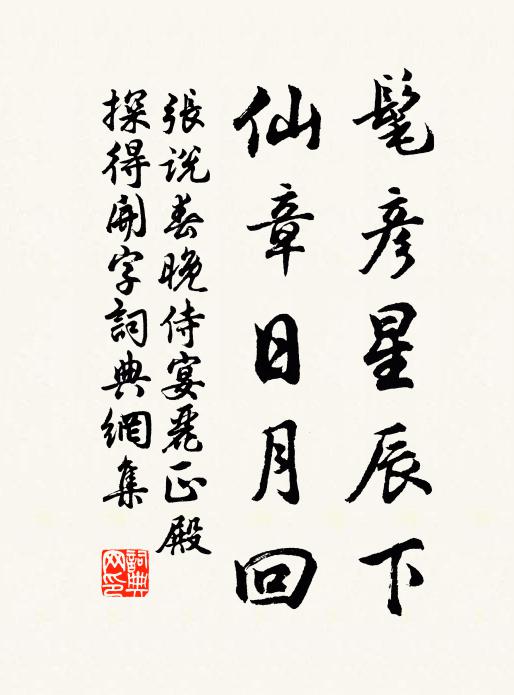 髦彦星辰下
仙章日月回
張説春晚侍宴麗正殿
探得開字詞典網集
詞典網印